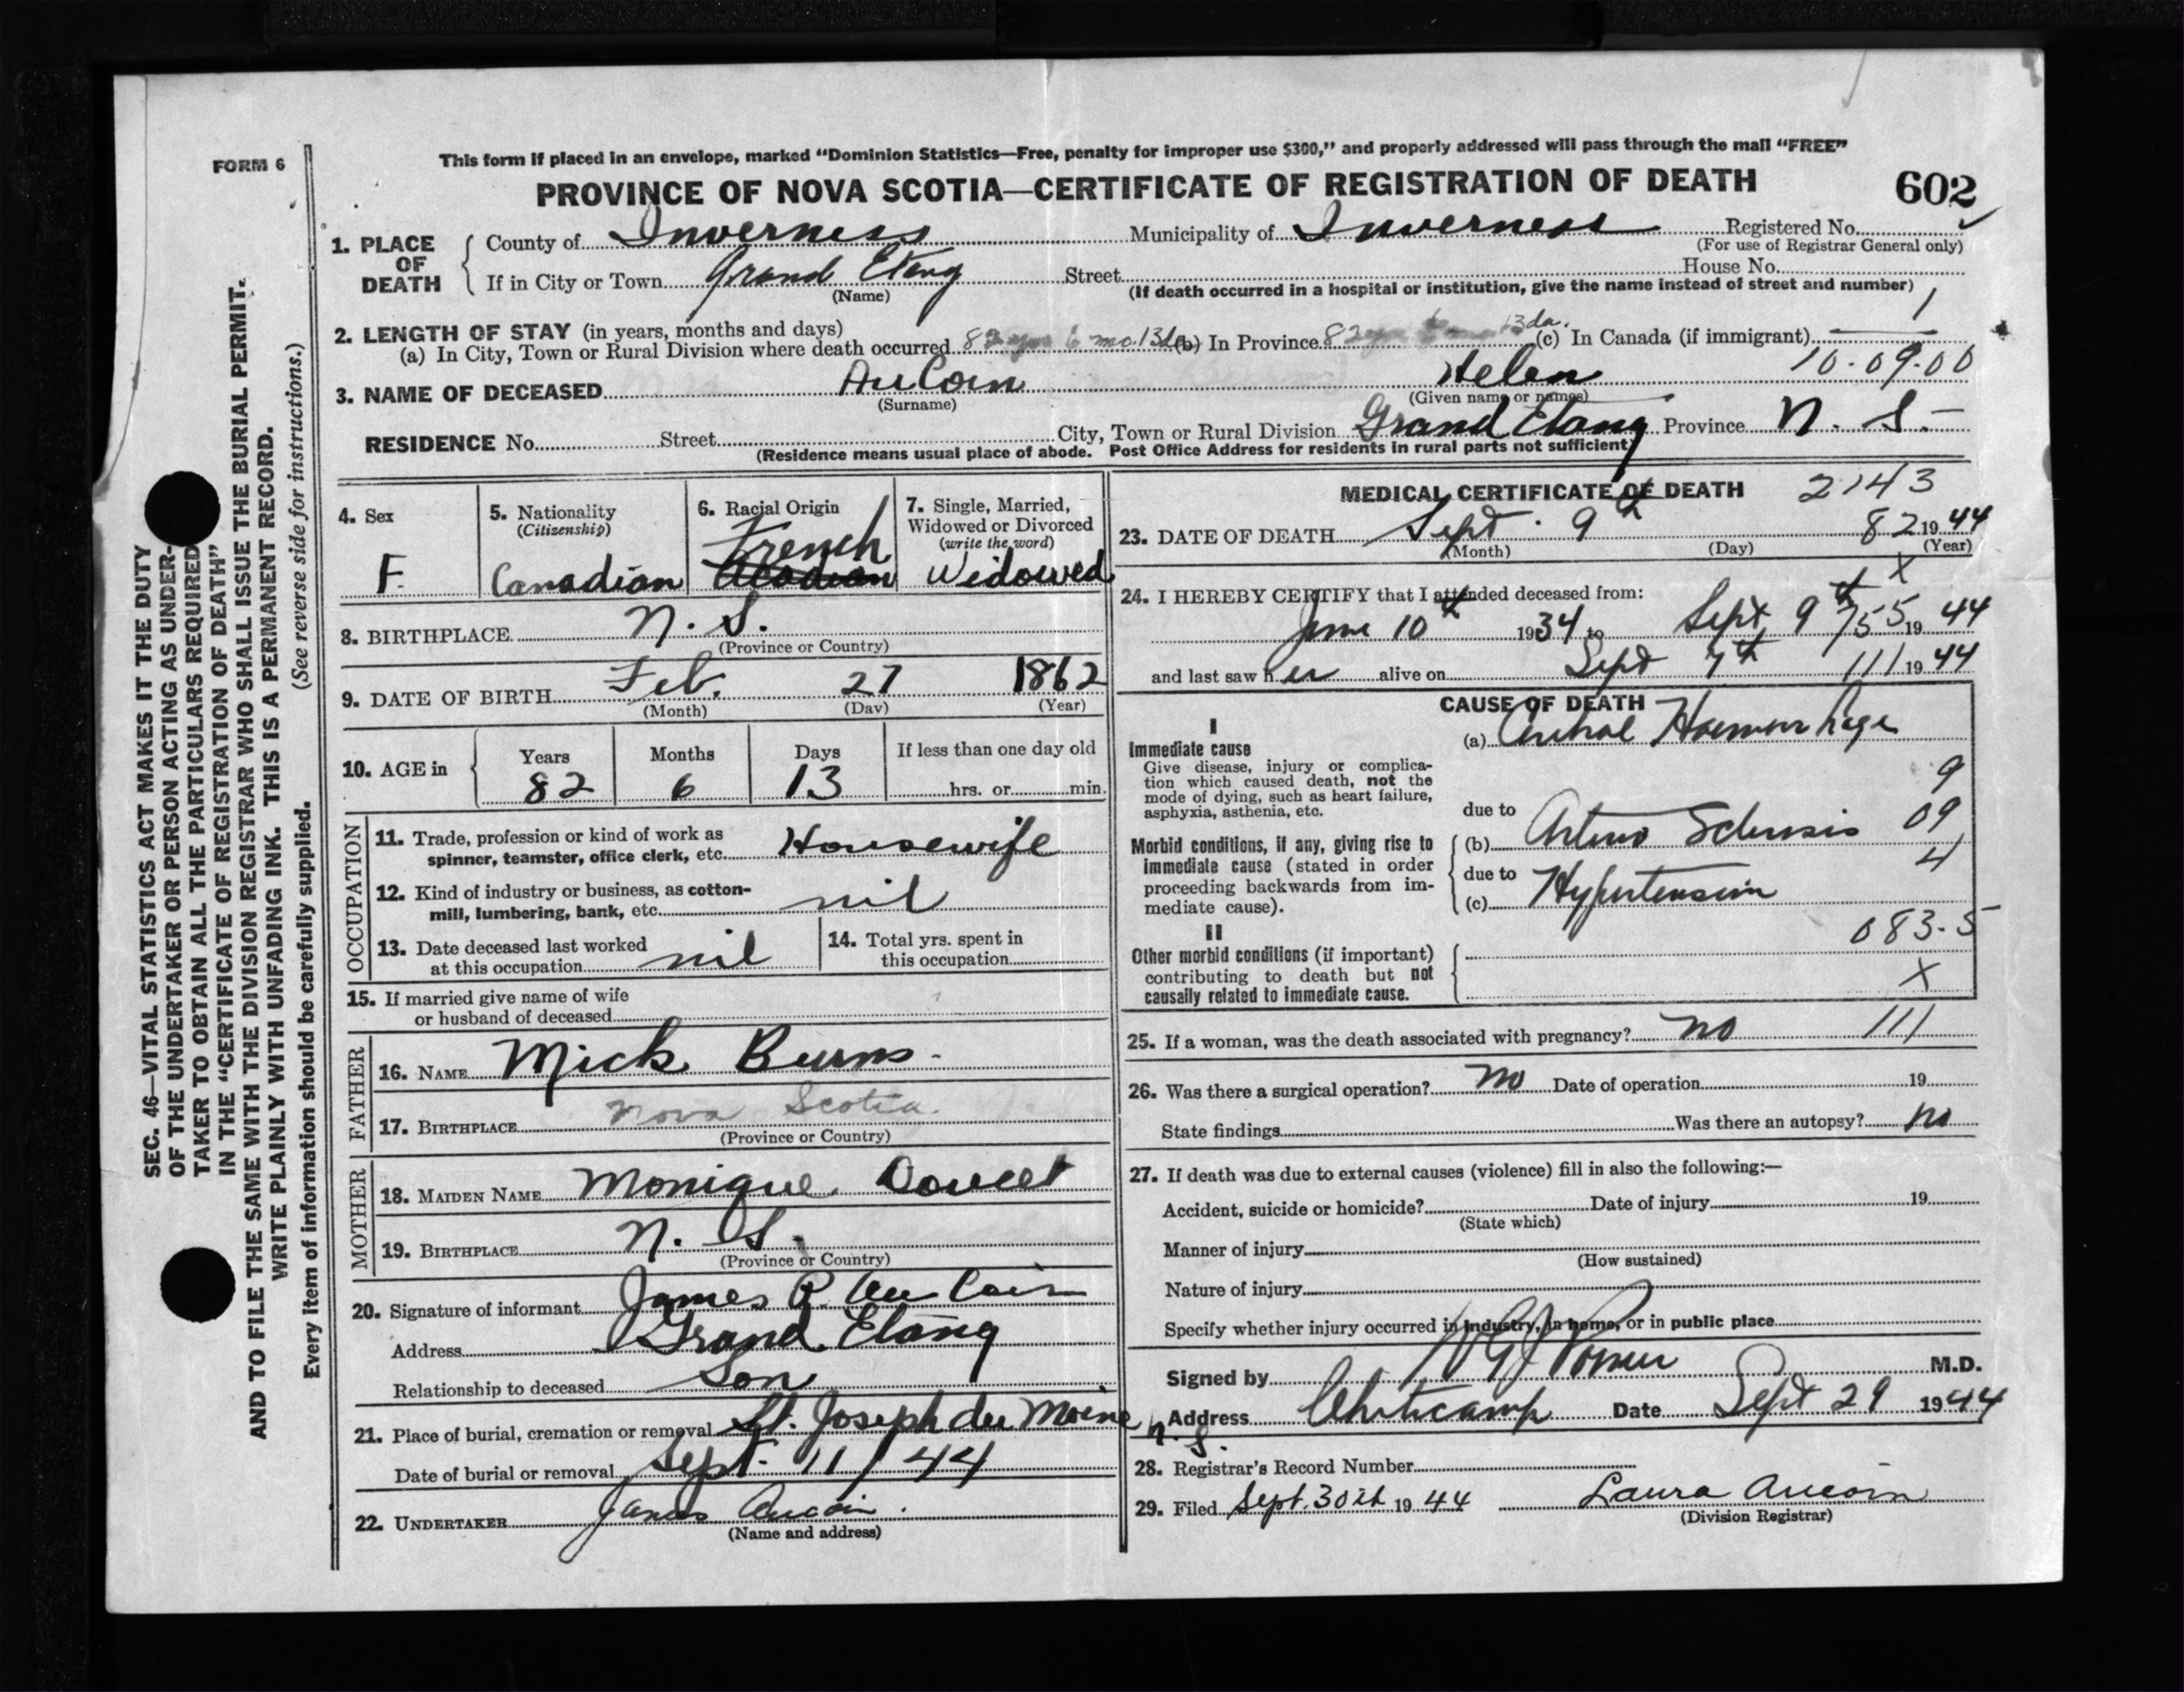 FORM 6
This form if placed in an envelope, marked “Dominion Statistics—Free, penalty for improper use $300,” and properly addressed will pass through the mail “FREE”
PROVINCE OF NOVA SCOTIA—CERTIFICATE OF REGISTRATION OF DEATH 602
1. PLACE OF DEATH County of Inverness Municipality of Inverness Registered No.
(For use of Registrar General only)
If in City or Town Grand Etang Street House No.
(Name) (If death occurred in a hospital or institution, give the name instead of street and number) 1
2. LENGTH OF STAY (in years, months and days)
(a) In City, Town or Rural Division where death occurred 82 yrs 6 mo. 13 da (b) In Province 82 yrs 6 mo 13 da. (c) In Canada (if immigrant)
10-09-00
3. NAME OF DECEASED AuCoin Helen
(Surname) (Given name or names)
RESIDENCE No. Street City, Town or Rural Division Grand Etang Province N. S.
(Residence means usual place of abode. Post Office Address for residents in rural parts not sufficient)
4. Sex F.
5. Nationality (Citizenship) Canadian
6. Racial Origin French Acadian
7. Single, Married, Widowed or Divorced (write the word) Widowed
8. BIRTHPLACE N. S.
(Province or Country)
9. DATE OF BIRTH Feb. 27 1862
(Month) (Day) (Year)
10. AGE in Years 82 Months 6 Days 13 If less than one day old hrs. or min.
OCCUPATION
11. Trade, profession or kind of work as spinner, teamster, office clerk, etc. Housewife
12. Kind of industry or business, as cotton-mill, lumbering, bank, etc. nil
13. Date deceased last worked at this occupation nil
14. Total yrs. spent in this occupation
15. If married give name of wife or husband of deceased
FATHER
16. NAME Mick Burns.
17. BIRTHPLACE Nova Scotia.
(Province or Country)
MOTHER
18. MAIDEN NAME Monique Doucet
19. BIRTHPLACE N. S.
(Province or Country)
20. Signature of informant James P. AuCoin
Address Grand Etang
Relationship to deceased Son
21. Place of burial, cremation or removal St. Joseph du Moine N. S.
Date of burial or removal Sept. 11/44
22. UNDERTAKER James Aucoin.
(Name and address)
MEDICAL CERTIFICATE OF DEATH 2143
23. DATE OF DEATH Sept. 9th 82 1944
(Month) (Day) (Year)
X
24. I HEREBY CERTIFY that I attended deceased from:
June 10th 1934 to Sept 9th 755 1944
and last saw her alive on Sept 7th 111 1944
CAUSE OF DEATH
I
Immediate cause
Give disease, injury or complication which caused death, not the mode of dying, such as heart failure, asphyxia, asthenia, etc.
(a) Cerebral Haemorrhage
9
due to
(b) Arterio Sclerosis 09
Morbid conditions, if any, giving rise to immediate cause (stated in order proceeding backwards from immediate cause).
4
due to
(c) Hypertension
083-5
II
Other morbid conditions (if important) contributing to death but not causally related to immediate cause.
X
25. If a woman, was the death associated with pregnancy? no 111
26. Was there a surgical operation? no Date of operation 19
State findings Was there an autopsy? no
27. If death was due to external causes (violence) fill in also the following:—
Accident, suicide or homicide? Date of injury 19
(State which)
Manner of injury
(How sustained)
Nature of injury
Specify whether injury occurred in industry, in home, or in public place
Signed by M.D.
Address Cheticamp Date Sept 29 1944
28. Registrar's Record Number
29. Filed Sept. 30th 1944 Laura Aucoin
(Division Registrar)
SEC. 46—VITAL STATISTICS ACT MAKES IT THE DUTY
OF THE UNDERTAKER OR PERSON ACTING AS UNDER-
TAKER TO OBTAIN ALL THE PARTICULARS REQUIRED
IN THE “CERTIFICATE OF REGISTRATION OF DEATH”
AND TO FILE THE SAME WITH THE DIVISION REGISTRAR WHO SHALL ISSUE THE BURIAL PERMIT.
WRITE PLAINLY WITH UNFADING INK. THIS IS A PERMANENT RECORD.
Every item of information should be carefully supplied. (See reverse side for instructions.)